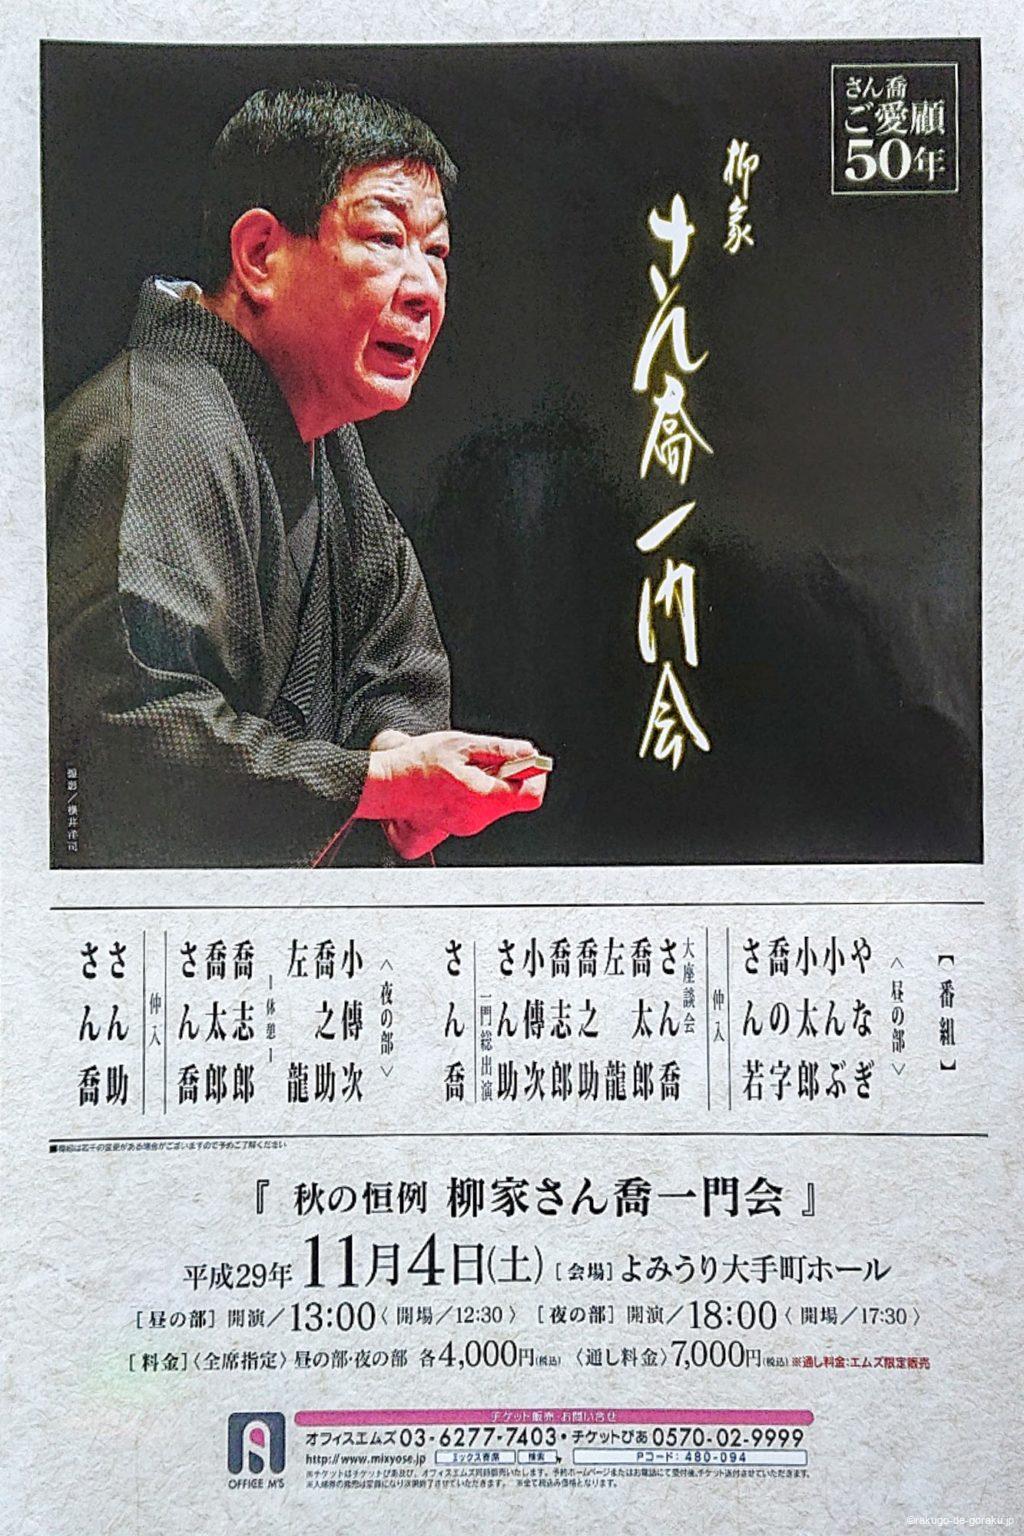 さん喬
ご愛顧
50年
柳家
さん喬一門会
撮影／横井洋司
【番組】
〈昼の部〉
やなぎ
小んぶ
小太郎
喬の字
さん若
仲入
大座談会
さん喬
喬太郎
左龍
喬之助
喬志郎
小傳次
さん助
一門総出演
さん喬
〈夜の部〉
小傳次
喬之助
左龍
－休憩－
喬志郎
喬太郎
さん喬
仲入
さん助
さん喬
■番組は若干の変更がある場合がございますので予めご了解ください
『 秋の恒例 柳家さん喬一門会 』
平成29年11月4日(土) [会場] よみうり大手町ホール
[昼の部] 開演／13:00〈 開場／12:30 〉 [夜の部] 開演／18:00〈 開場／17:30 〉
[料金]〈全席指定〉昼の部・夜の部 各4,000円(税込) 〈通し料金〉7,000円(税込) ※通し料金：エムズ限定販売
チケット販売・お問い合せ
オフィスエムズ03-6277-7403・チケットぴあ0570-02-9999
http://www.mixyose.jp ミックス寄席 検索 Pコード：480-094
OFFICE M'S
©rakugo-de-goraku.jp